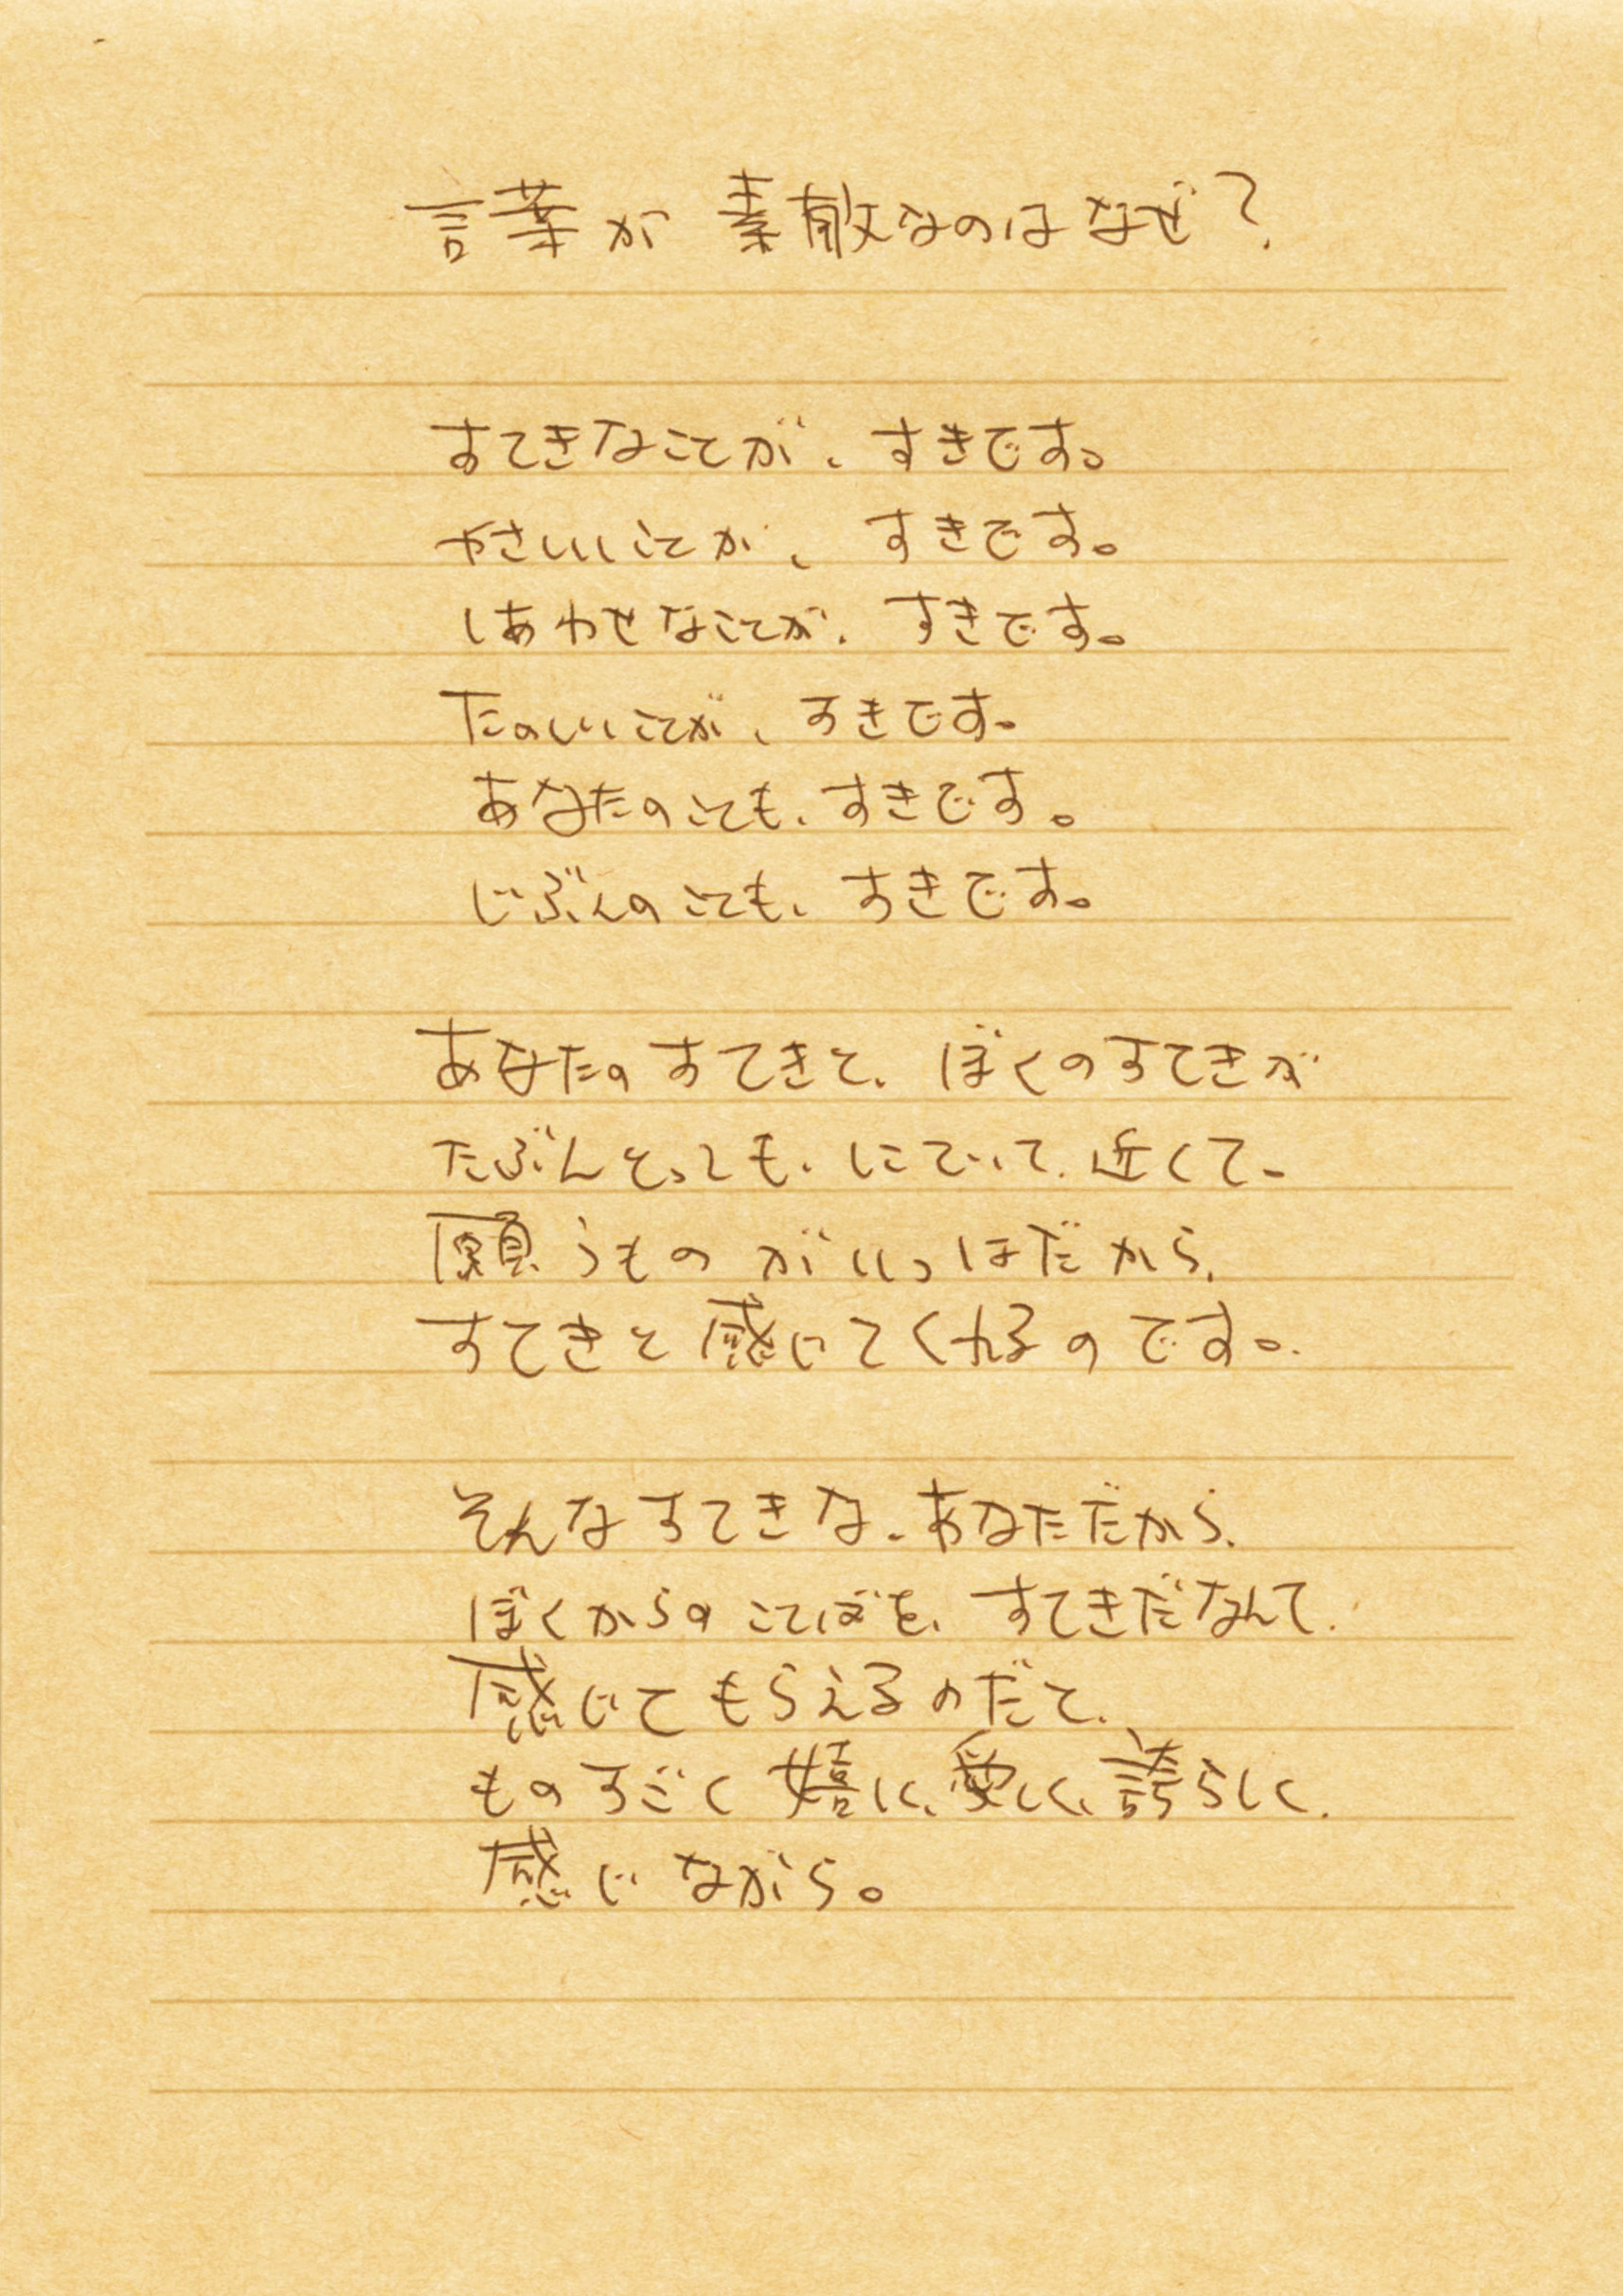 言葉が 素敵なのは なぜ?
すてきなことが、すきです。
やさしいことが、すきです。
しあわせなことが、すきです。
たのしいことが、すきです。
あなたのことも、すきです。
じぶんのことも、すきです。
あなたのすてきと、ぼくのすてきが
たぶんとっても、にていて、近くて、
願うものがいっぱだから、
すてきと感じてくれるのです。
そんなすてきな、あなただから、
ぼくからのことばを、すてきだなんて、
感じてもらえるのだと、
ものすごく嬉しく、愛しく、誇らしく、
感じながら。